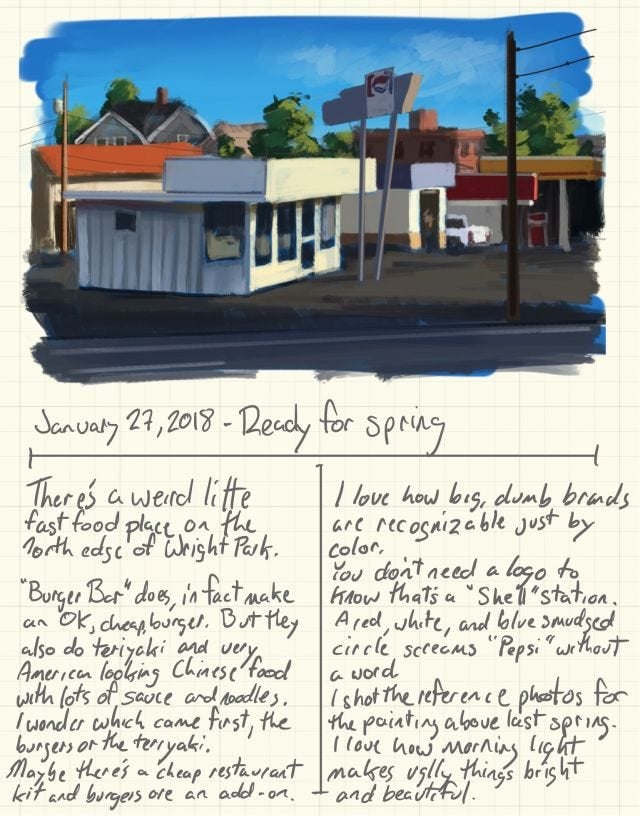 January 27, 2018 - Ready for spring
There's a weird little
fast food place on the
North edge of Wright Park.
"Burger Bar" does, in fact make
an OK, cheap, burger. But they
also do teriyaki and very
American looking Chinese food
with lots of sauce and noodles.
I wonder which came first, the
burgers or the teriyaki.
Maybe there's a cheap restaurant
kit and burgers are an add-on.
I love how big, dumb brands
are recognizable just by
color.
You don't need a logo to
know that's a "Shell" station.
A red, white, and blue smudged
circle screams "Pepsi" without
a word
I shot the reference photos for
the painting above last spring.
I love how morning light
makes ugly things bright
and beautiful.